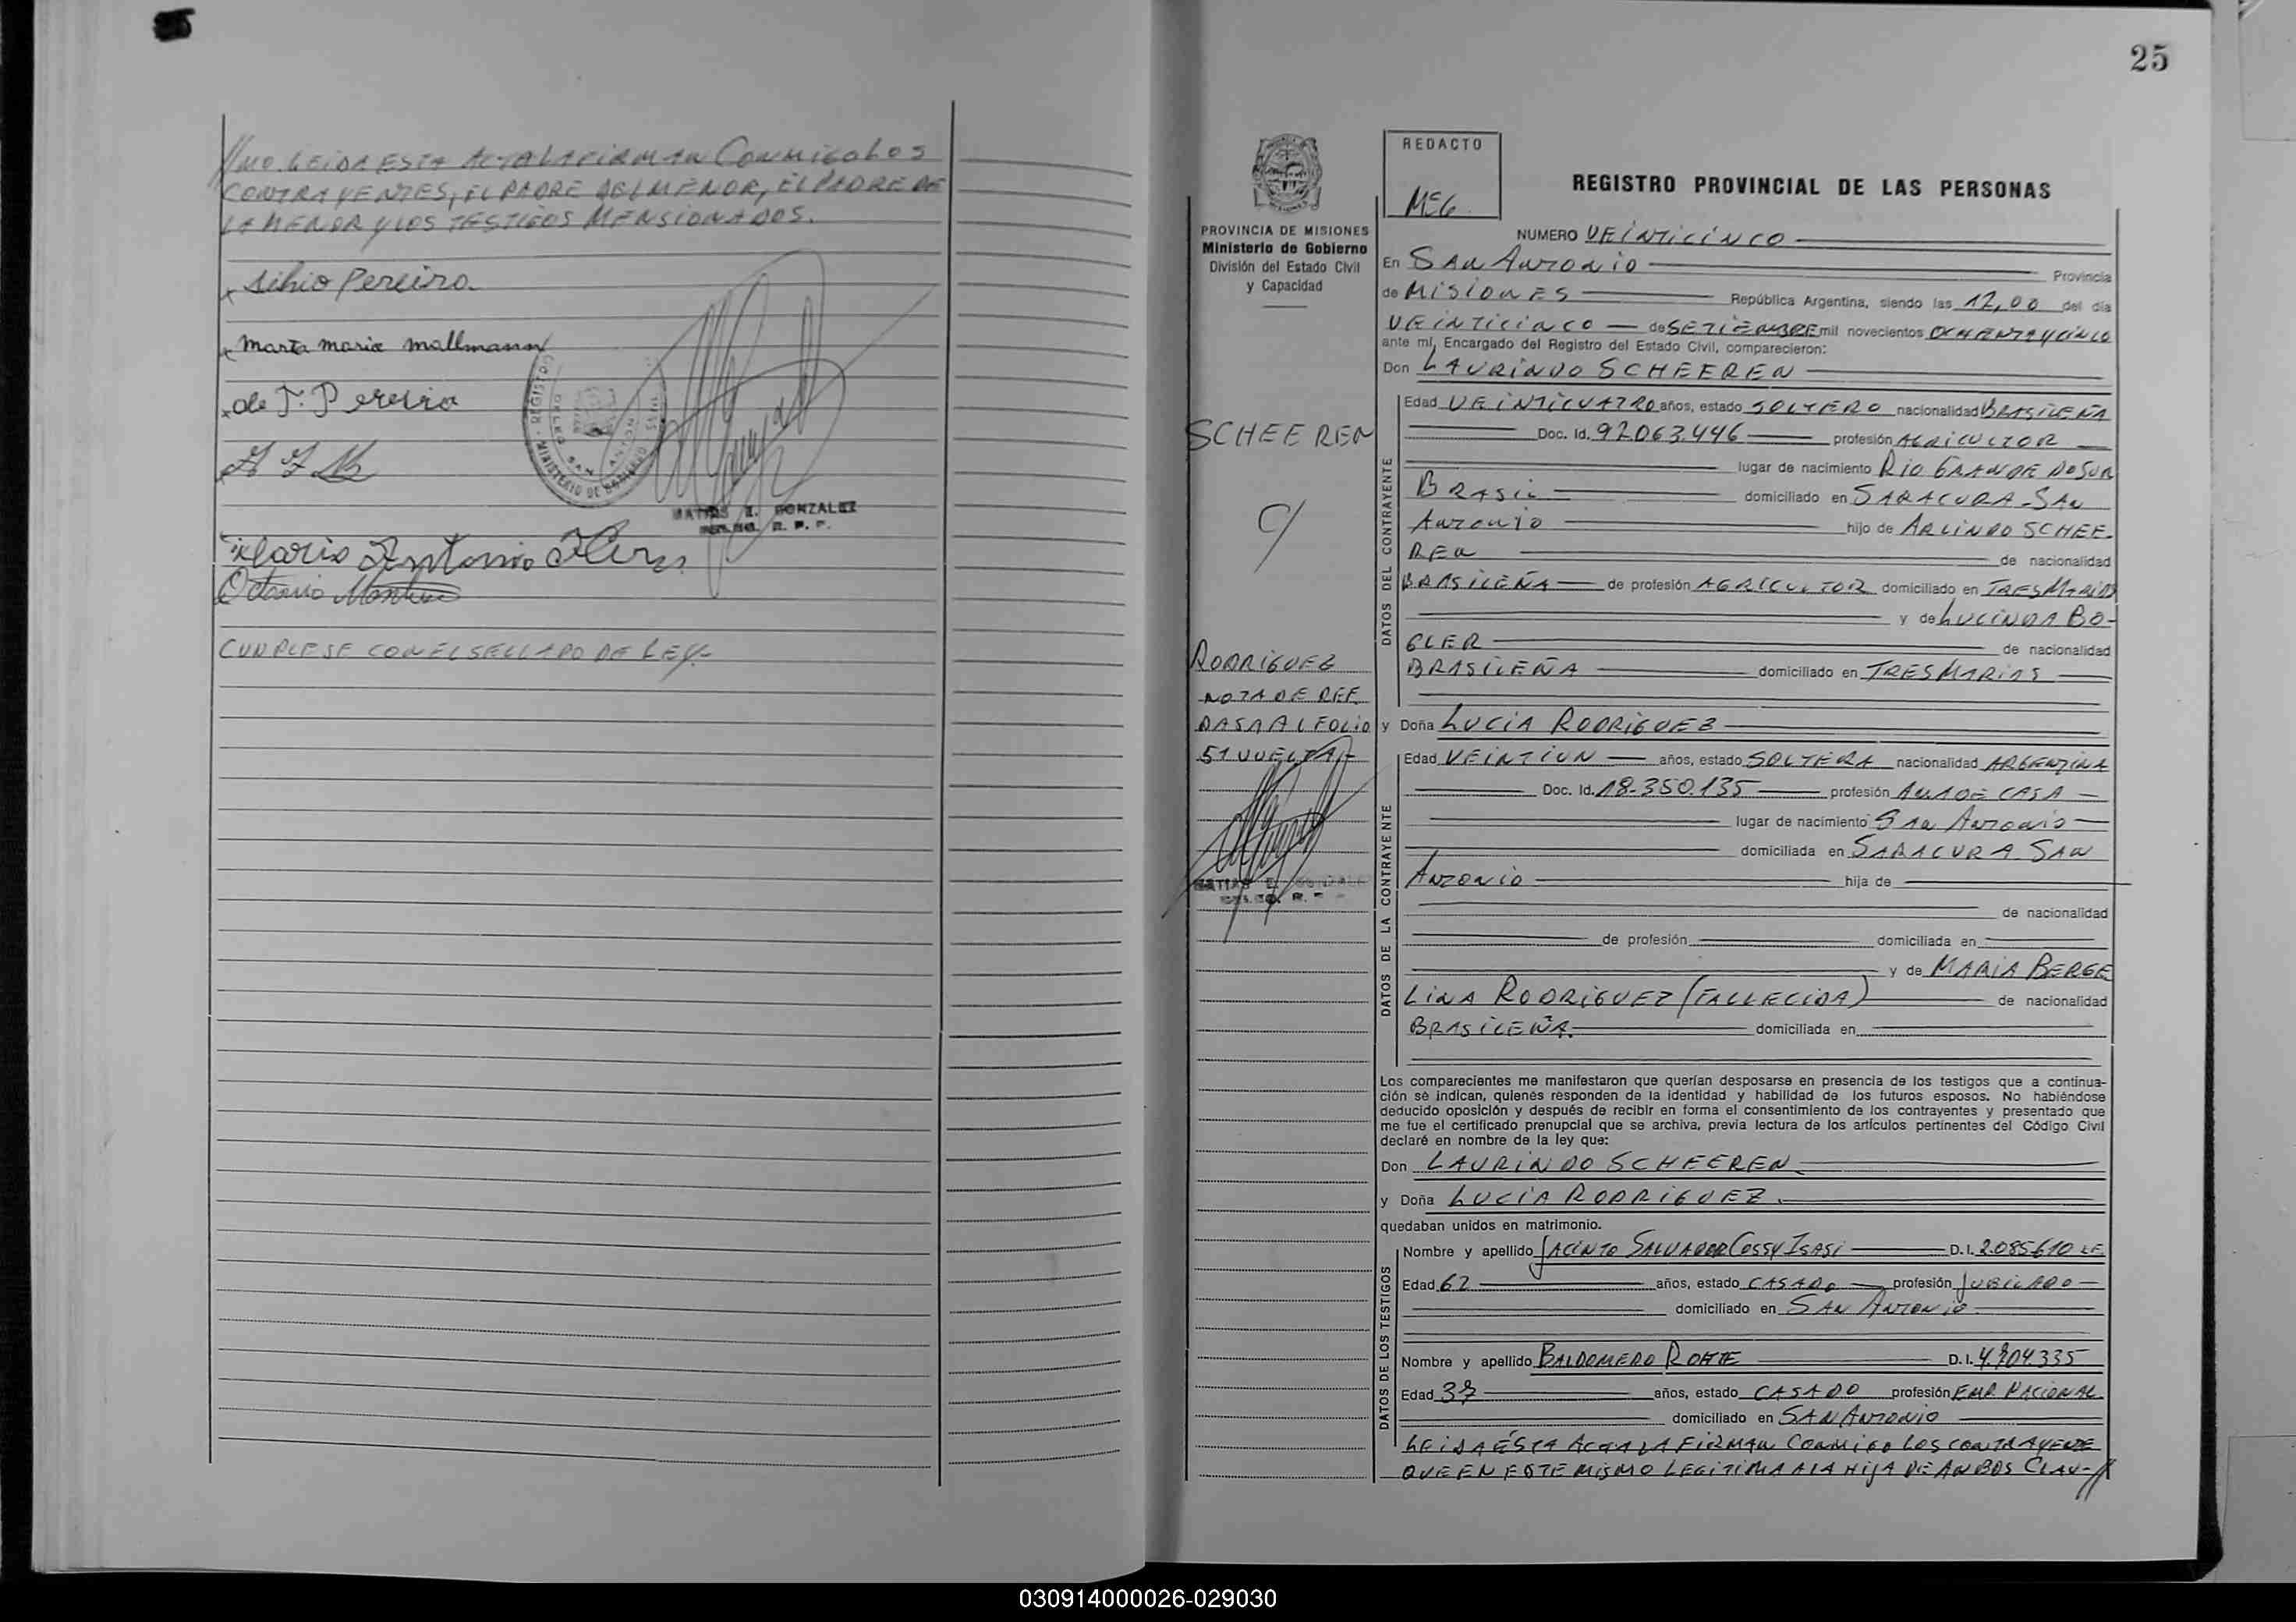 //MO. LEIDA ESTA ACTA LA FIRMAN CONMIGO LOS
CONTRAYENTES, EL PADRE DEL MENOR, EL PADRE DE
LA MENOR Y LOS TESTIGOS MENSIONADOS.
x Silvio Pereira.
x marta maria mallmann
x de T. Pereira
REGISTRO
MINISTERIO DE GOBIERNO
SAN ANTONIO
MATIAS E. GONZALEZ
Mario Antonio
Octavio
CUNPLESE CON EL SELLADO DE LEY.-
25
REDACTO
MEG.
PROVINCIA DE MISIONES
Ministerio de Gobierno
División del Estado Civil
y Capacidad
SCHEEREN
C/
RODRIGUEZ
NOTA DE REF.
PASA AL FOLIO
51 VUELTA.-
MATIAS E. GONZALEZ
REGISTRO PROVINCIAL DE LAS PERSONAS
NUMERO VEINTICINCO
En SAN ANTONIO Provincia
de MISIONES República Argentina, siendo las 12,00 del día
VEINTICINCO de SETIEMBRE mil novecientos OCHENTA Y CINCO
ante mí, Encargado del Registro del Estado Civil, comparecieron:
Don LAURINDO SCHEEREN
DATOS DEL CONTRAYENTE
Edad VEINTICUATRO años, estado SOLTERO nacionalidad BRASILEÑA
Doc. Id. 92.063.446 profesión AGRICULTOR
lugar de nacimiento RIO GRANDE DO SUR
BRASIL domiciliado en SARACURA-SAN
ANTONIO hijo de ARLINDO SCHEE-
REN de nacionalidad
BRASILEÑA de profesión AGRICULTOR domiciliado en TRES MARIAS
y de LUCINDA BO-
GLER de nacionalidad
BRASILEÑA domiciliado en TRES MARIAS
y Doña LUCIA RODRIGUEZ
DATOS DE LA CONTRAYENTE
Edad VEINTIUN años, estado SOLTERA nacionalidad ARGENTINA
Doc. Id. 18.350.135 profesión AMA DE CASA
lugar de nacimiento SAN ANTONIO
domiciliada en SARACURA SAN
ANTONIO hija de
de nacionalidad
de profesión domiciliada en
y de MARIA BERGE
LINA RODRIGUEZ (FALLECIDA) de nacionalidad
BRASILEÑA. domiciliada en
Los comparecientes me manifestaron que querían desposarse en presencia de los testigos que a continua-
ción se indican, quienes responden de la identidad y habilidad de los futuros esposos. No habiéndose
deducido oposición y después de recibir en forma el consentimiento de los contrayentes y presentado que
me fue el certificado prenupcial que se archiva, previa lectura de los artículos pertinentes del Código Civil
declaré en nombre de la ley que:
Don LAURINDO SCHEEREN
y Doña LUCIA RODRIGUEZ.
quedaban unidos en matrimonio.
DATOS DE LOS TESTIGOS
Nombre y apellido JACINTO SALVADOR COSSY ISASI D.I. 2.085.610 L.E.
Edad 62 años, estado CASADO profesión JUBILADO
domiciliado en SAN ANTONIO
Nombre y apellido BALDOMERO ROHTE D.I.
Edad años, estado CASADO profesión EMP. NACIONAL
domiciliado en SAN ANTONIO
LEIDA ÉSTA ACTA LA FIRMAN CONMIGO LOS CONTRAYENTE
QUE EN ESTE MISMO LEGITIMA A LA HIJA DE ANBOS CLAU-//
030914000026-029030